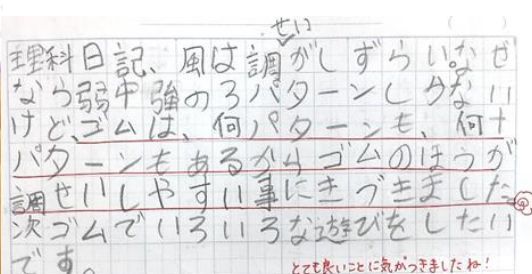 せい
理科日記、風は調がしずらい。なぜ
なら弱中強の3パターンしかない
けど、ゴムは、何パターンも、何十
パターンもあるからゴムのほうが
調せいしやすい事にきづきました。
次ゴムでいろいろな遊びをしたい
です。
とても良いことに気がつきましたね!